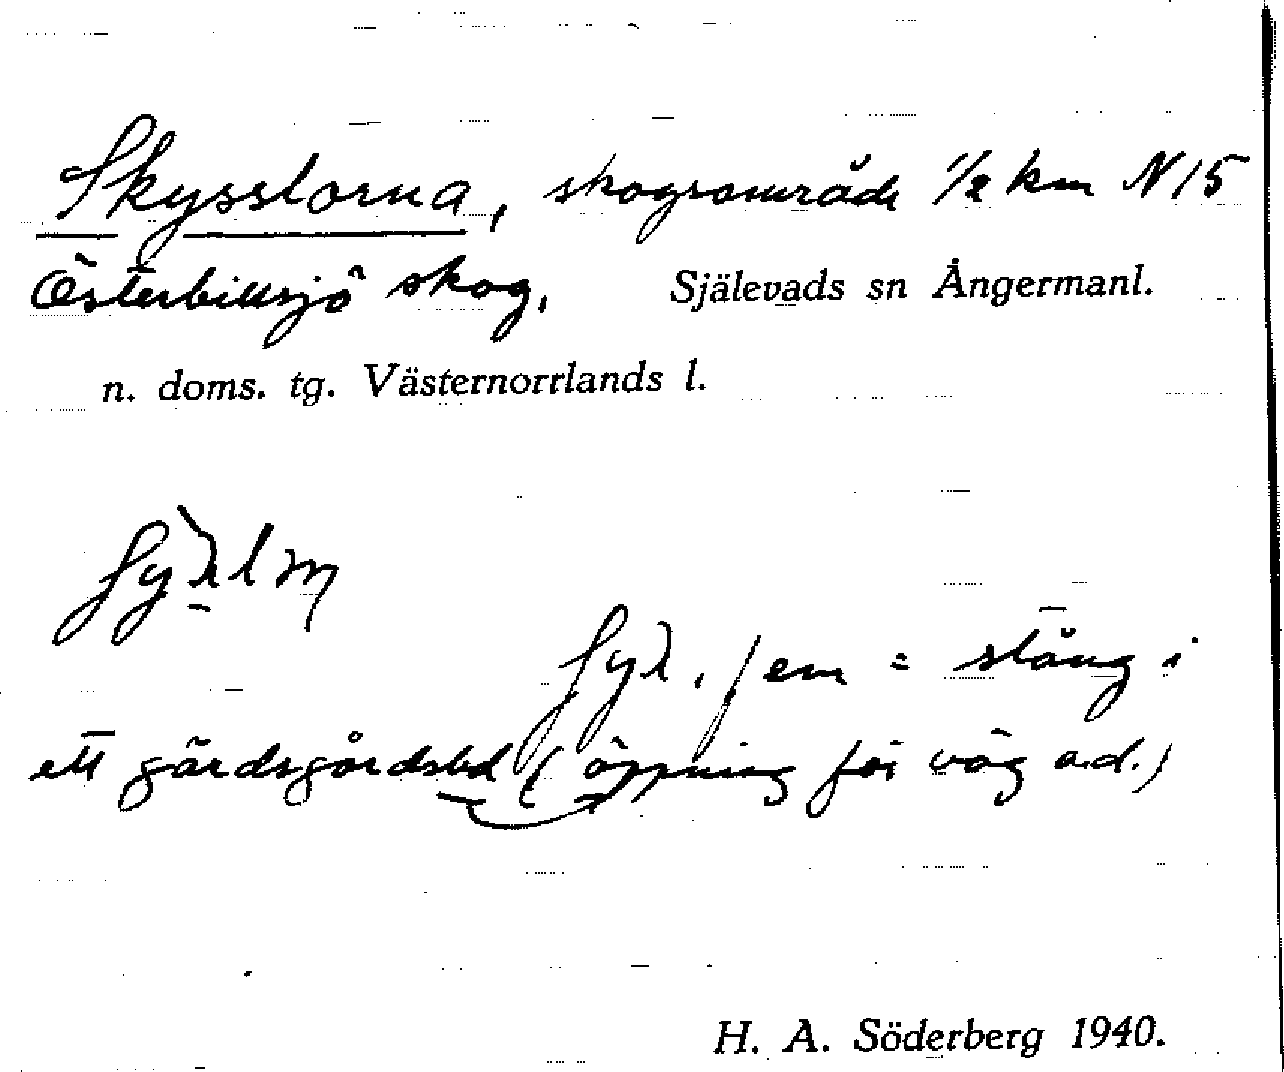 Skysslorna, skogsområde 1/2 km N15
Österbillsjö skog, Själevads sn Ångermanl.
n. doms. tg. Västernorrlands l.
en = slång i
ett gärdsgårdsled (öppning för väg a.d.)
H. A. Söderberg 1940.